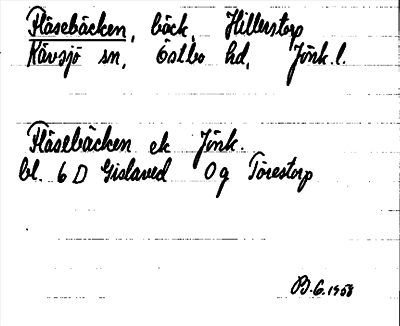 Fläsebäcken, bäck, Hillerstorp
Kävsjö sn, Östbo hd, Jönk.l.
Fläsebäcken ek Jönk.
bl. 6 D Gislaved 0g Törestorp
1958